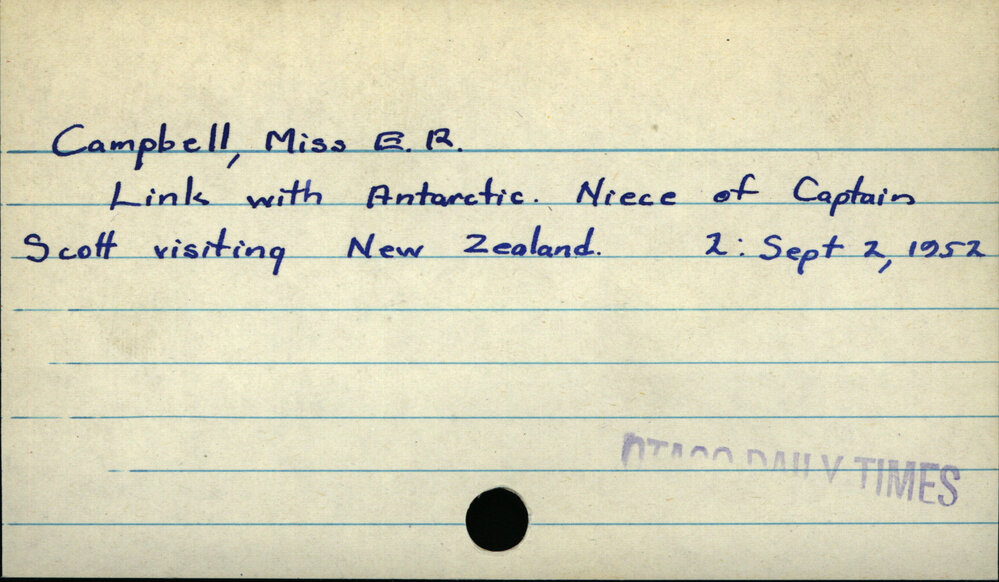 Campbell, Miss E. R.
Link with Antarctic. Niece of Captain
Scott visiting New Zealand. 2: Sept 2, 1952
OTAGO DAILY TIMES